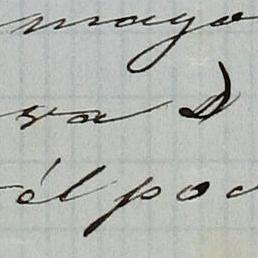 mayo
va D
él poc